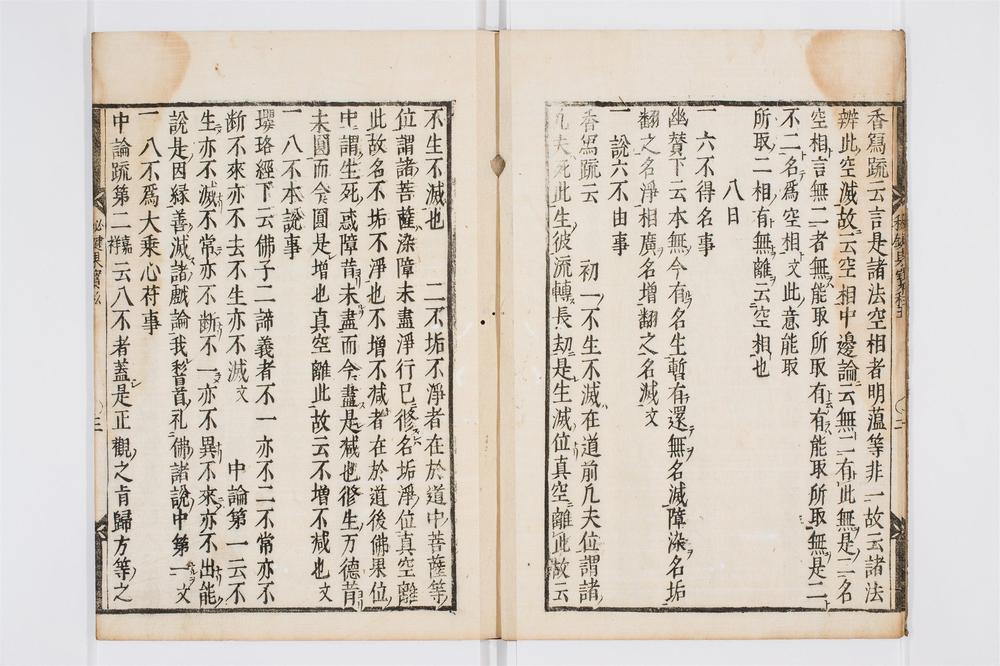 香寫疏云言是諸法空相者明蘊等非一故云諸法
辨此空滅故云空相中邊論云無二有此無是二名
空相言無二者無能取所取有有能取所取無是二
不二名爲空相文此意能取
所取二相有無離云空相也
八日
一 六不得名事
幽賛下云本無今有名生暫有還無名滅障染名垢
翻之名淨相廣名增翻之名減文
一 說六不由事
香寫疏云 初一不生不滅在道前凡夫位謂諸
凡夫死此生彼流轉長劫是生滅位真空離此故云
不生不滅也 二不垢不淨者在於道中菩薩等
位謂諸菩薩染障未盡淨行巳修名垢淨位真空離
此故名不垢不淨也不增不减者在於道後佛果位
中謂生死惑障昔未盡而今盡是减也修生万德昔
未圓而今圓是增也真空離此故云不增不减也文
一 八不本說事
瓔珞經下云佛子二諦義者不一亦不二不常亦不
断不來亦不去不生亦不滅文 中論第一云不
生亦不滅不常亦不断不一亦不異不來亦不出能
說是因縁善滅諸戲論我稽首礼佛諸說中第一文
一 八不爲大乗心符事
中論疏第二嘉祥云八不者蓋是正觀之肯歸方等之